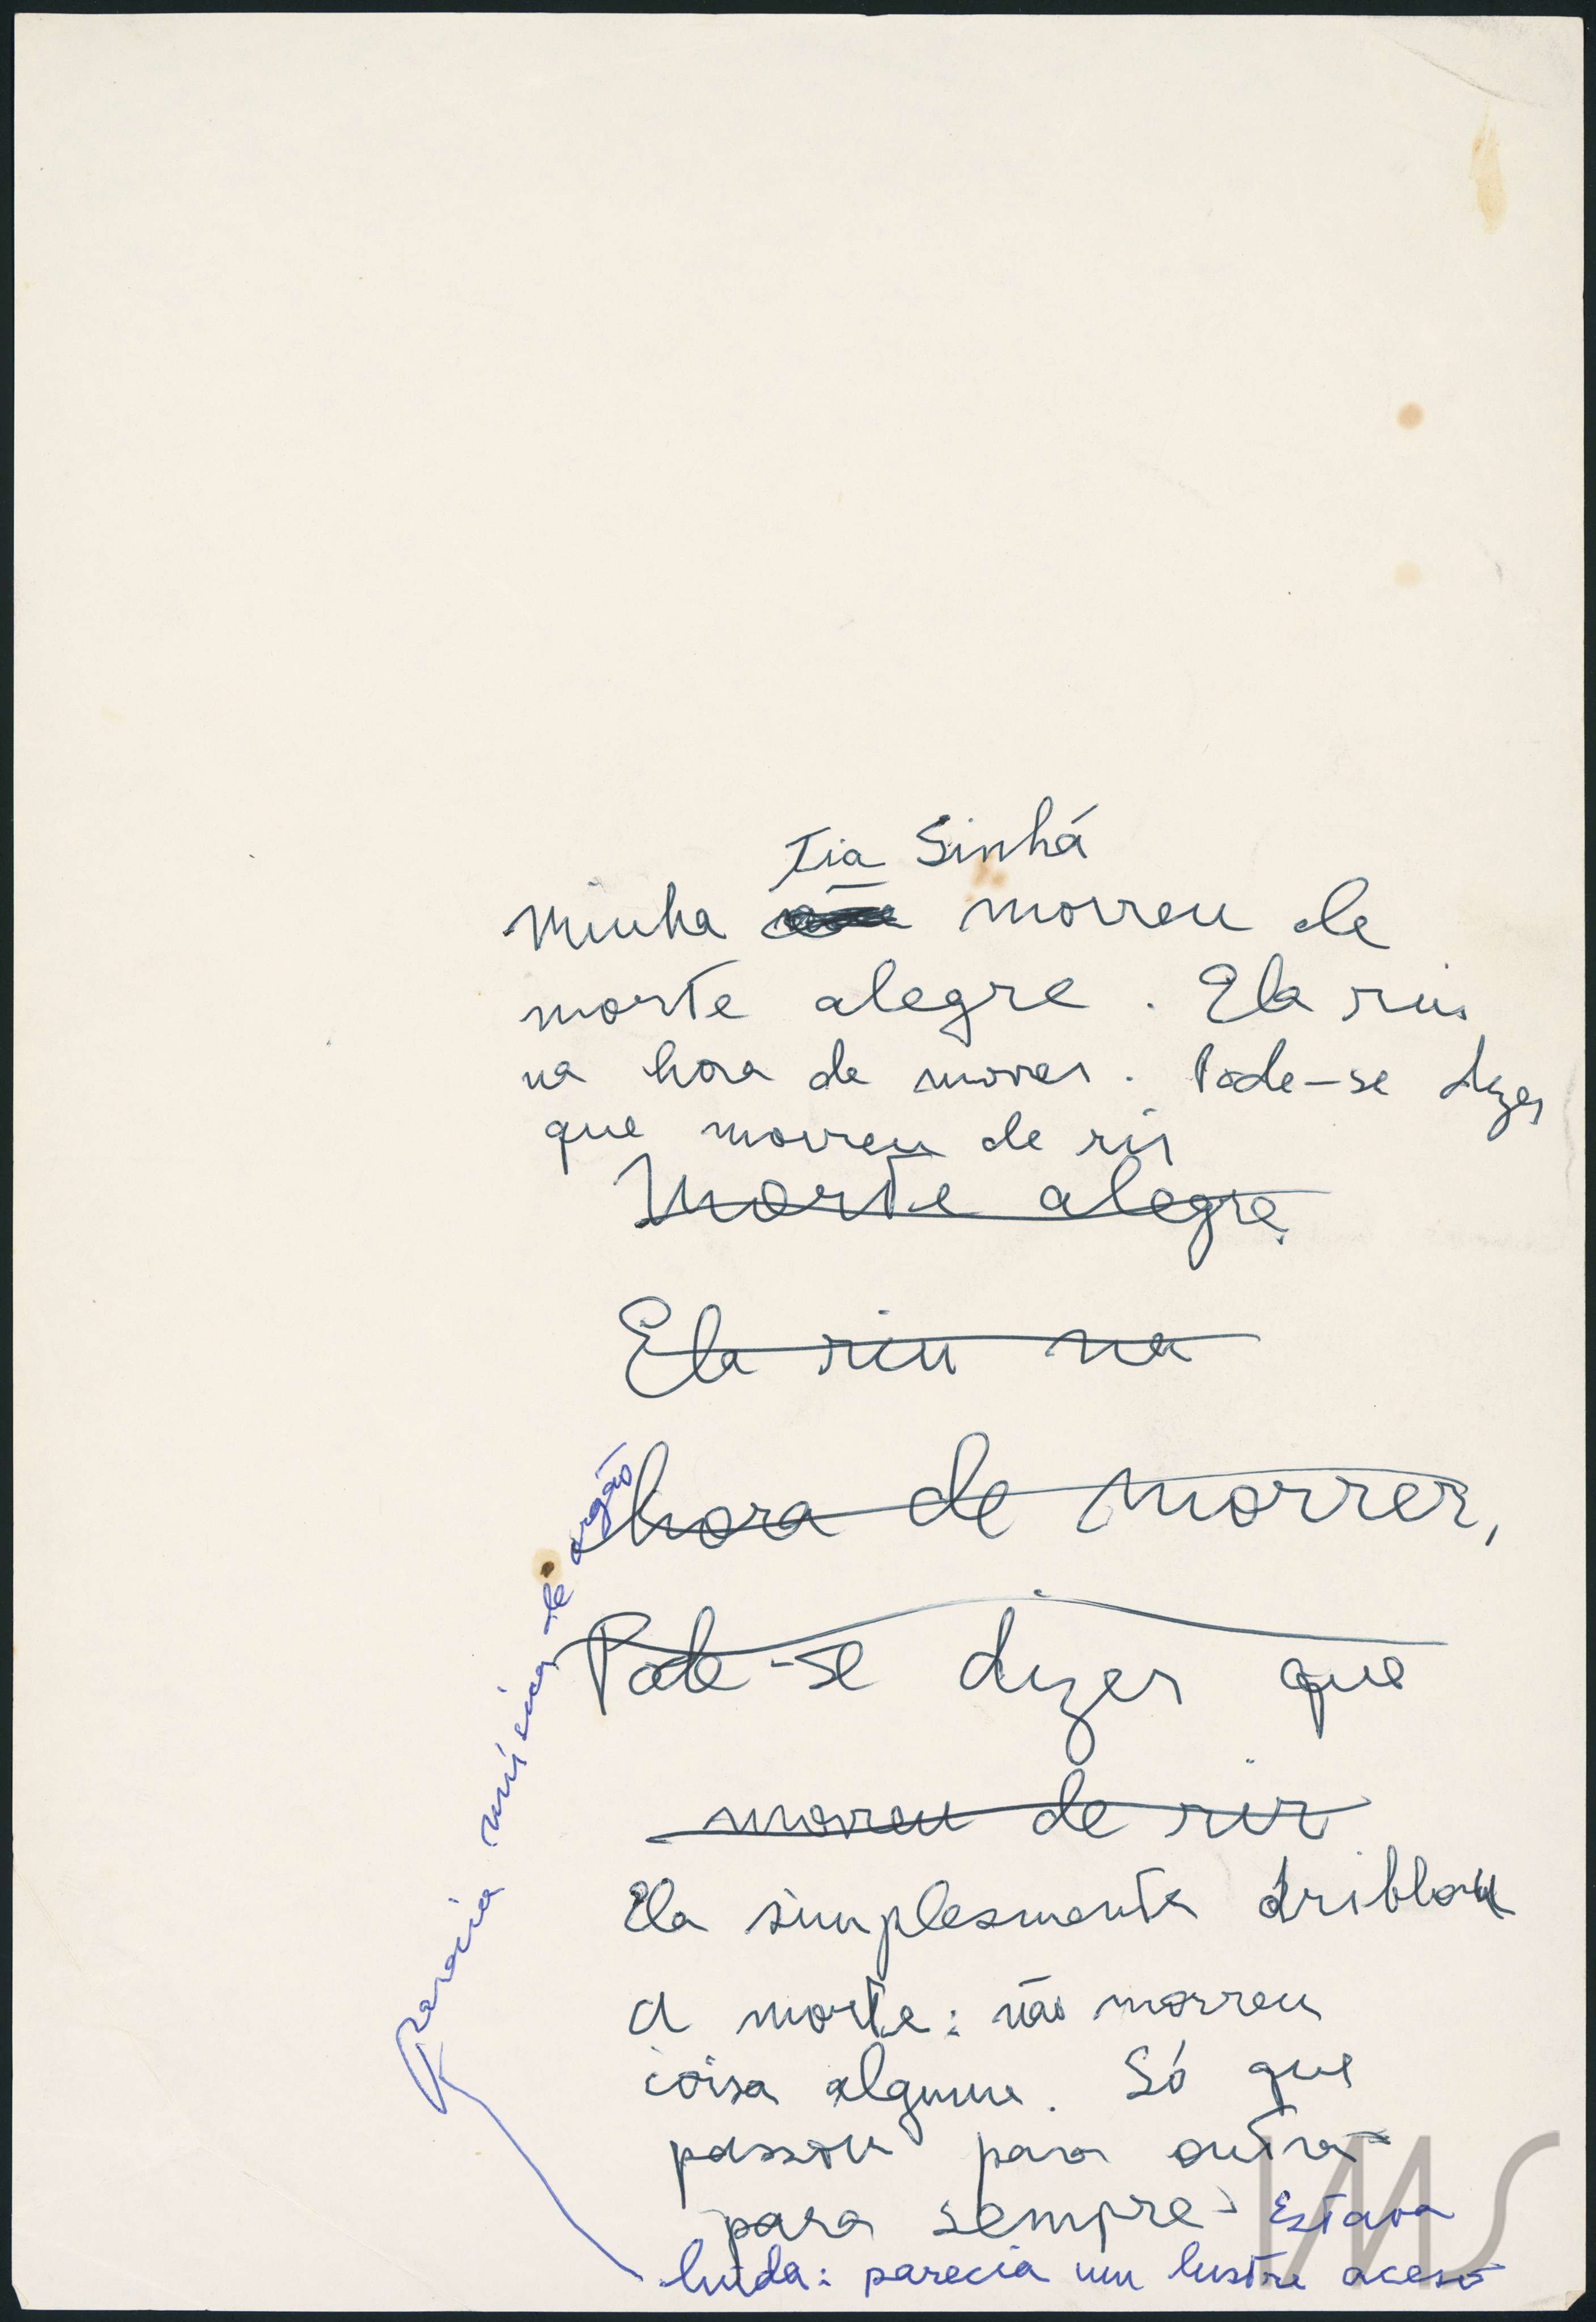 Tia Sinhá
Minha mãe morreu de
morte alegre. Ela riu
na hora de morrer. Pode-se dizer
que morreu de rir
Morte alegre.
Ela riu na
hora de morrer,
Pode-se dizer que
morreu de rir
Ela simplesmente driblou
a morte: não morreu
coisa alguma. Só que
passou para outra
para sempre. Estava
linda: parecia um lustre aceso
parecia música de orgão
IMS